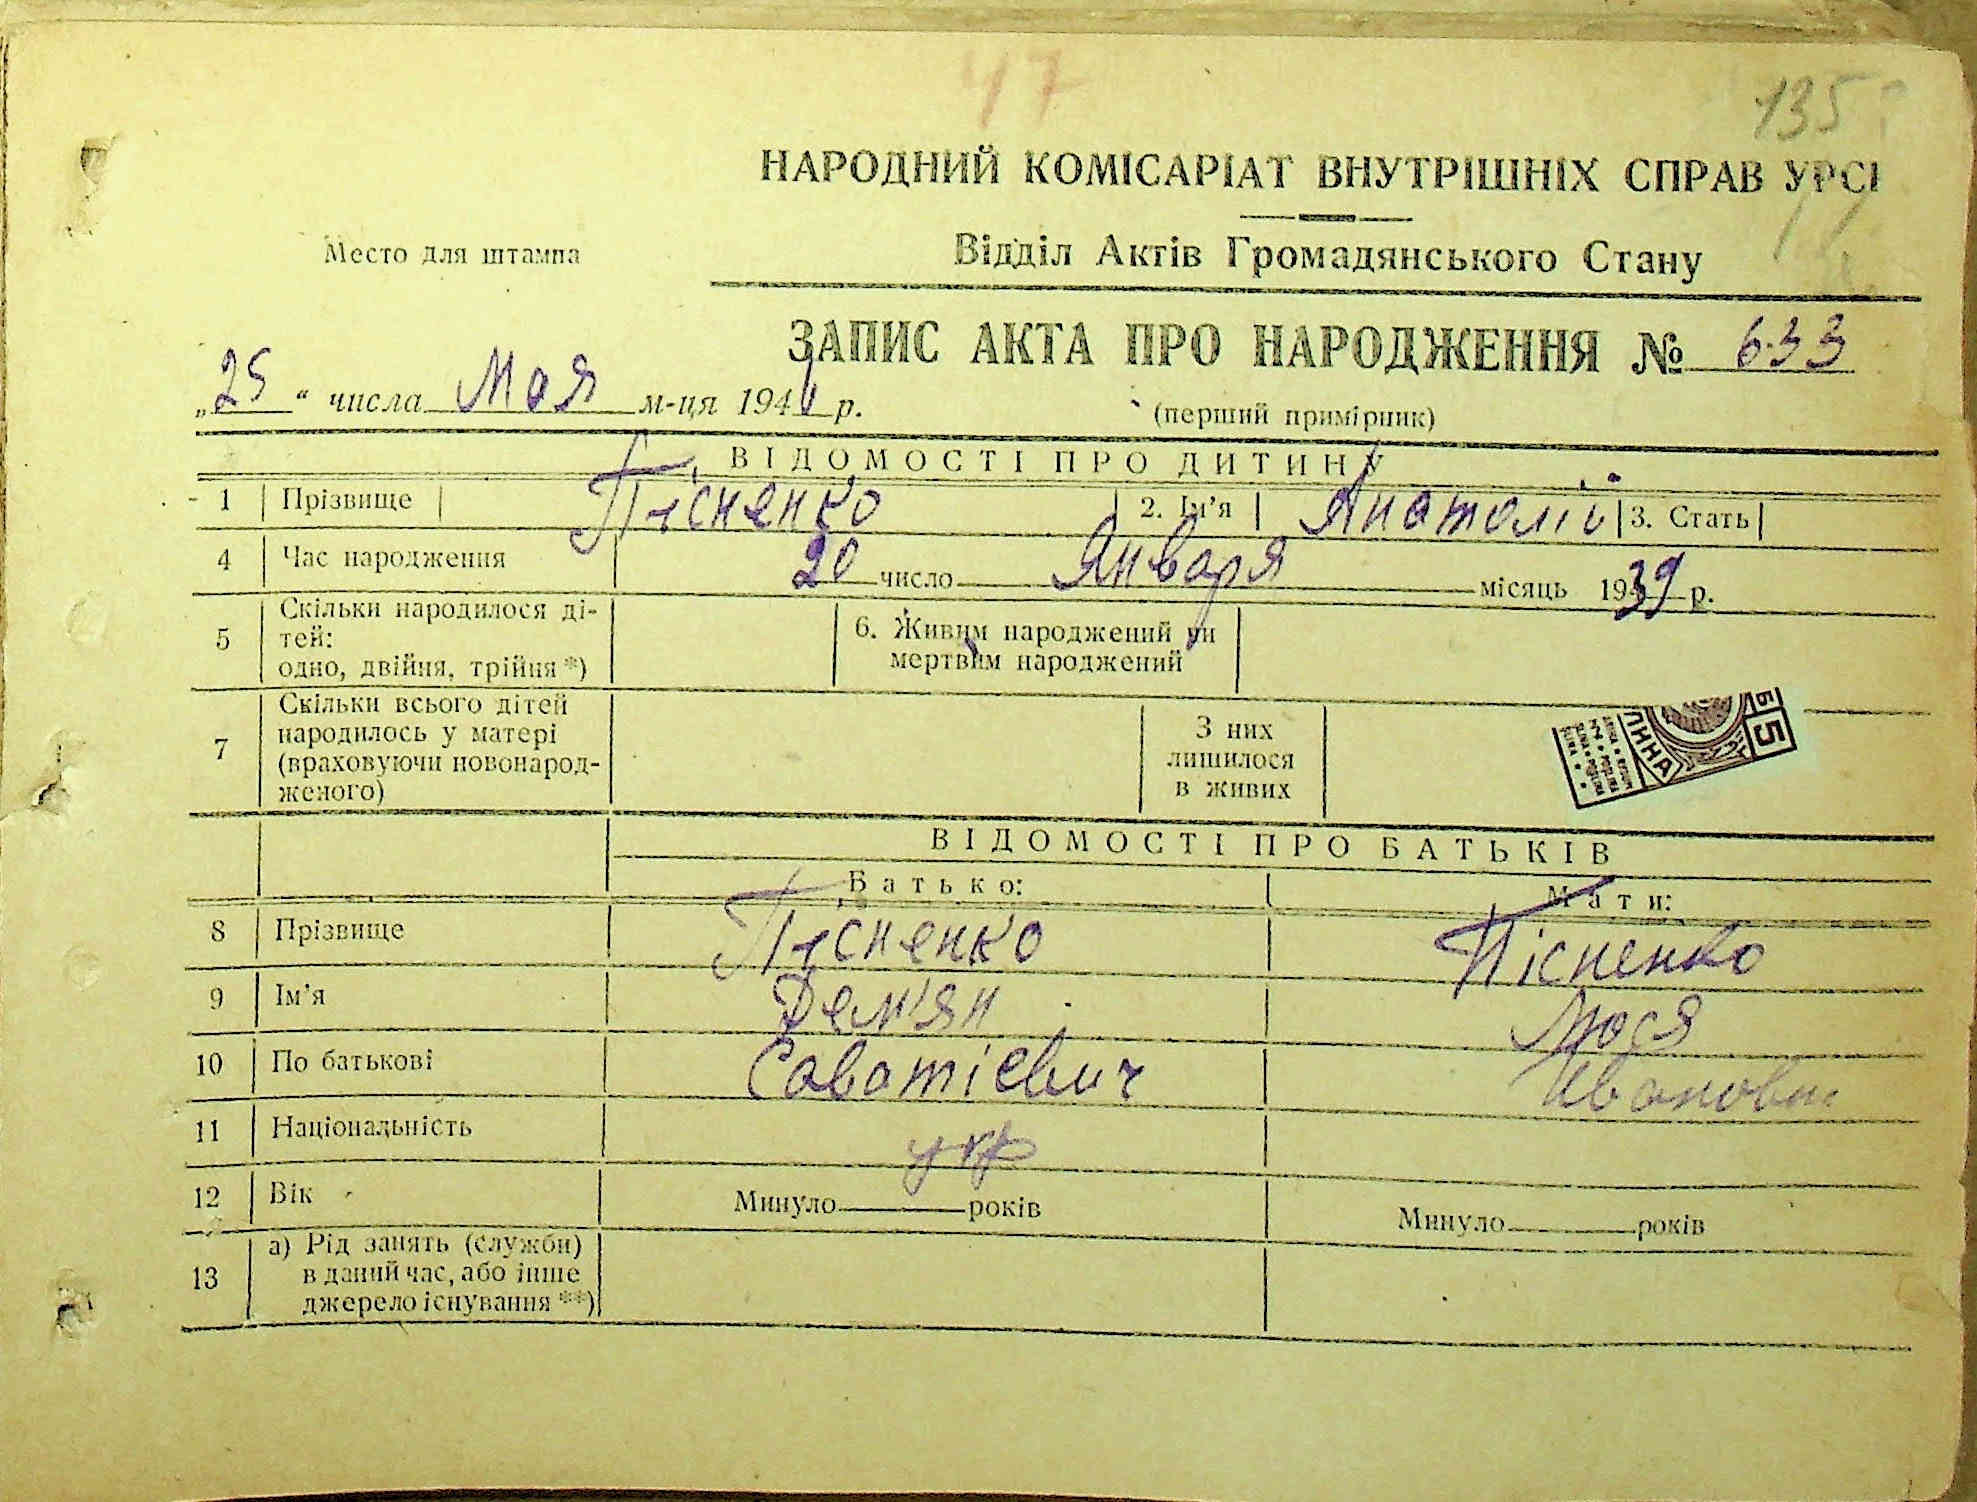 47
135
НАРОДНИЙ КОМІСАРІАТ ВНУТРІШНІХ СПРАВ УРСІ
Место для штампа
Відділ Актів Громадянського Стану
ЗАПИС АКТА ПРО НАРОДЖЕННЯ № 633
„25“ числа Мая м-ця 1941 р.
(перший примірник)
ВІДОМОСТІ ПРО ДИТИНУ
1 Прізвище Пісненко 2. Ім'я Анатолій 3. Стать
4 Час народження 20 число Января місяць 1939 р.
5 Скільки народилося ді-
тей:
одно, двійня, трійня *)
6. Живим народжений чи
мертвим народжений
7 Скільки всього дітей
народилось у матері
(враховуючи новонарод-
женого)
З них
лишилося
в живих
Б5
ВІДОМОСТІ ПРО БАТЬКІВ
Батько: Мати:
8 Прізвище Пісненко Пісненко
9 Ім'я Дем'ян Люся
10 По батькові Саватієвич Ивановн
11 Національність укр
12 Вік Минуло рoків Минуло років
13 а) Рід занять (служби)
в даний час, або інше
джерело існування **)